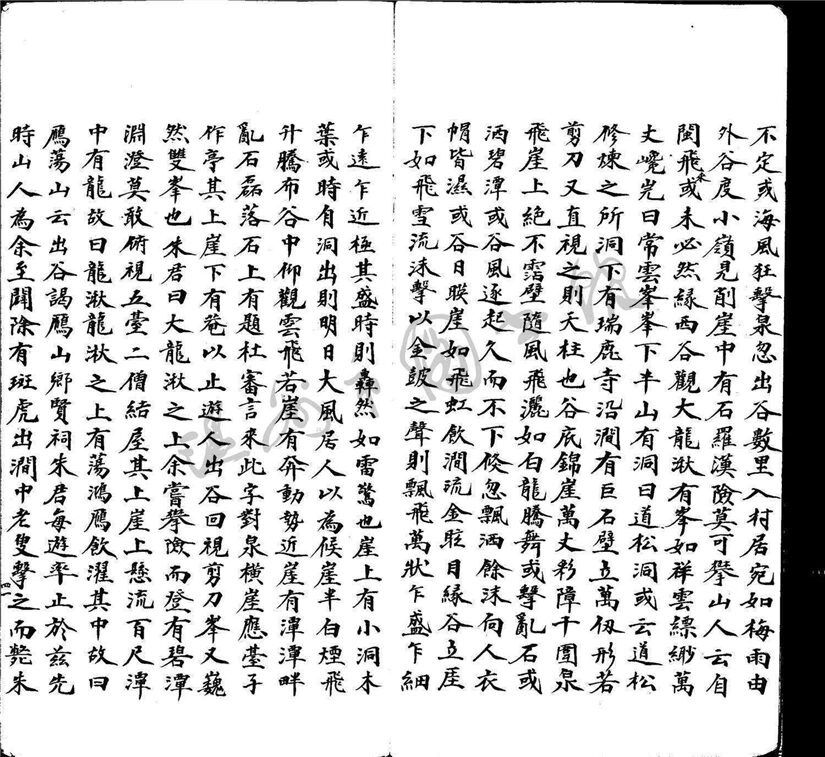 不定或海風狂擊泉忽出谷數里入村居宛如梅雨由
外谷度小嶺見削崖中有石羅漢險莫可攀山人云自
閩飛來或未必然緣西谷觀大龍湫有峯如群雲縹緲萬
丈巉岏曰常雲峯峯下半山有洞曰道松洞或云道松
修煉之所洞下有瑞鹿寺沿澗有巨石壁立萬仭形若
剪刀又直視之則天柱也谷底錦崖萬丈彩障千圍泉
飛崖上絕不霑壁隨風飛灑如白龍騰舞或擊亂石或
洒碧潭或谷風逐起久而不下倏忽飄洒餘沫向人衣
帽皆濕或谷日暎崖如飛虹飲澗流金眩目緣谷立厓
下如飛雪流沫擊以金鼓之聲則飄飛萬狀乍盛乍細
乍遠乍近極其盛時則轟然如雷驚也崖上有小洞木
葉或時自洞出則明日大風居人以為候崖半白煙飛
升騰布谷中仰觀雲飛若崖有奔動勢近崖有潭潭畔
亂石磊落石上有題杜審言來此字對泉橫崖應臺子
作亭其上崖下有菴以止遊人出谷回視剪刀峯又巍
然雙峯也朱君曰大龍湫之上余嘗攀險而登有碧潭
淵澄莫敢俯視五臺二僧結屋其上崖上懸流百尺潭
中有龍故曰龍湫龍湫之上有蕩鴻鴈飲濯其中故曰
鴈蕩山云出谷謁鴈山鄉賢祠朱君每遊率止於兹先
時山人為余至闢除有斑虎出澗中老叟擊之而斃朱